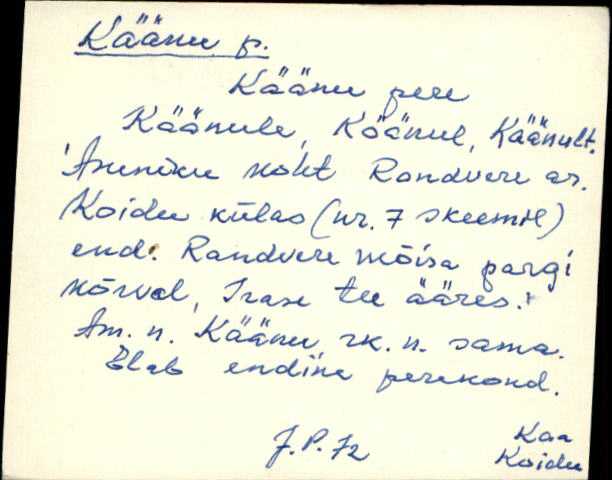 Käänu p.
Käänu pere
Käänule, Käänul, Käänult.
'Asuniku koht Randvere as.
Koidu külas (nr. 7 skeemil)
end. Randvere mõisa pargi
kõrval, Irase tee ääres.'
Am. n. Käänu, rk. n. sama.
Elab endine perekond.
J.P. 72
Kaa
Koidu